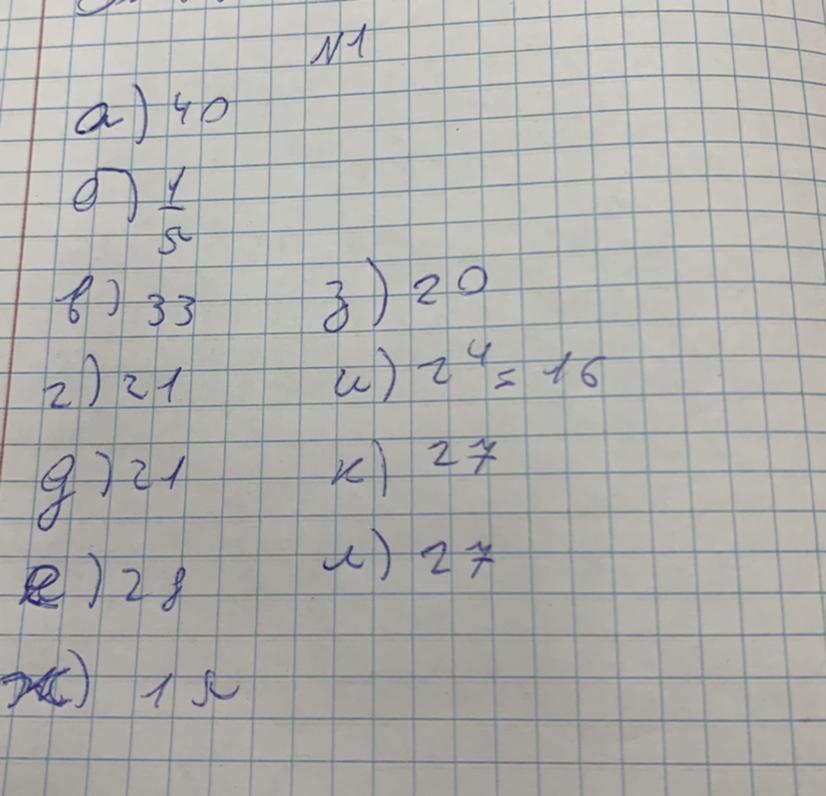 N1
а) 40
б) 1/5
в) 33
г) 21
д) 21
е) 28
ж) 15
з) 20
и) 2⁴ = 16
к) 27
л) 27